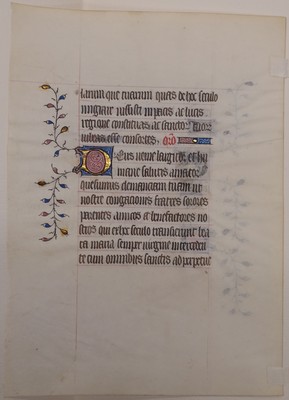 larum que tuarum quas de hoc seculo
migrare iussisti in pacis ac lucis
regione constituas ac sanctor tuor
iubeas esse consortes. orō
Deus venie largitor et hu
mane salutis amator
quesumus clementiam tuam ut
nostre congregacionis fratres sorores
parentes amicos et benefactores no
stros qui ex hoc seculo transierunt bea
ta maria semper virgine interceden
te cum omnibus sanctis ad perpetue